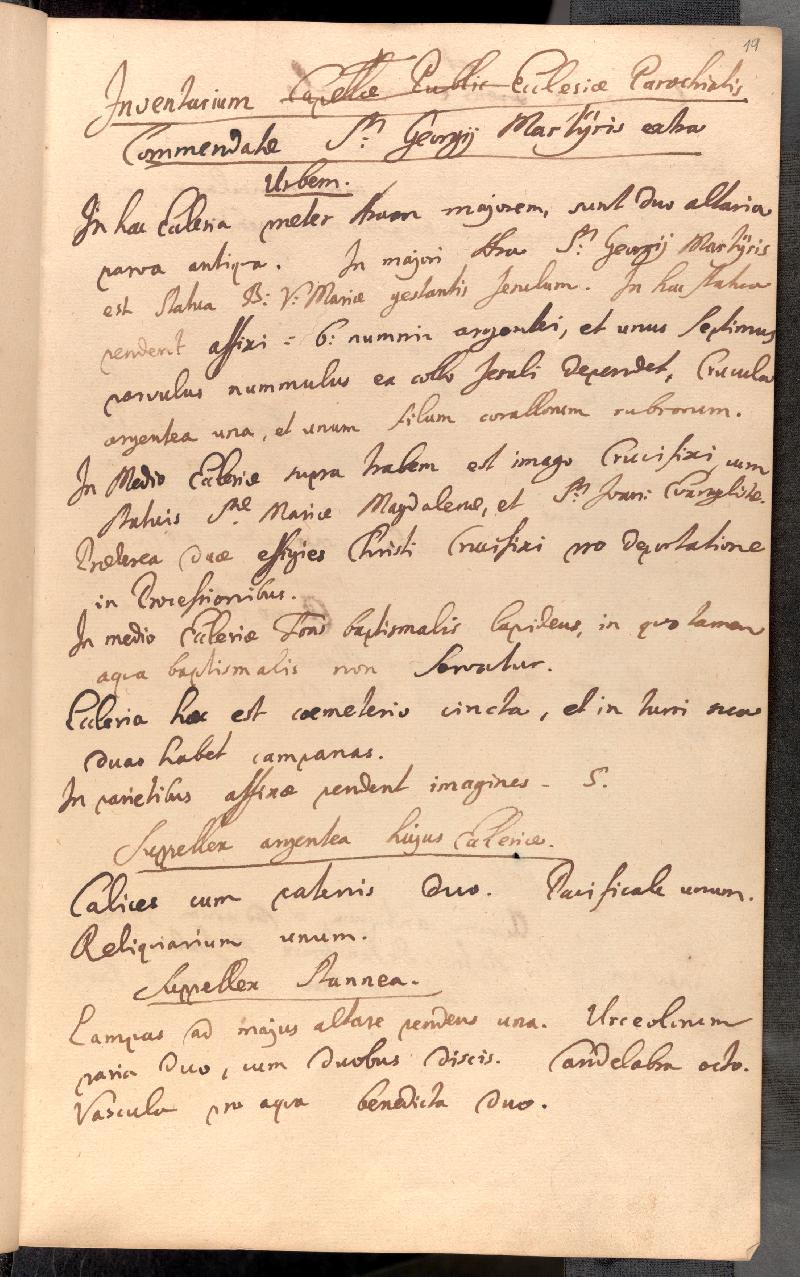 19
Inventarium Capellæ Public Ecclesiæ Parochialis
Commendatæ Sti: Georgij Martÿris extra
Urbem.
In hac Ecclesia præter Aram majorem, sunt duo altaria
parva antiqua. In majori Ara Sti: Georgij Martÿris
est Statua B: V: Mariæ gestantis Jesulum. In hac statua
pendent affixi = 6: nummi argentei, et unus Septimus
parvulus nummulus ex collo Jesuli dependet, Crucula
argentea una, et unum filum corallorum rubrorum.
In Medio Ecclesiæ supra trabem est imago Crucifixi cum
statuis Stæ Mariæ Magdalenæ, et Sti Joan: Evangelistæ.
Præterea duæ effigies Christi Crucifixi pro deportatione
in Processionibus.
In medio Ecclesiæ Fons baptismalis lapideus, in quo tamen
aqua baptismalis non servatur.
Ecclesia hæc est cœmeterio cincta, et in turri sua
duas habet campanas.
In parietibus affixæ pendent imagines - 5.
Suppellex argentea hujus Ecclesiæ.
Calices cum patenis duo. Pacificale unum.
Reliquiarium unum.
Suppellex Stannea.
Lampas ad majus altare pendens una. Urceolorum
paria duo, cum duobus discis. Candelabra octo.
Vascula pro aqua benedicta duo.